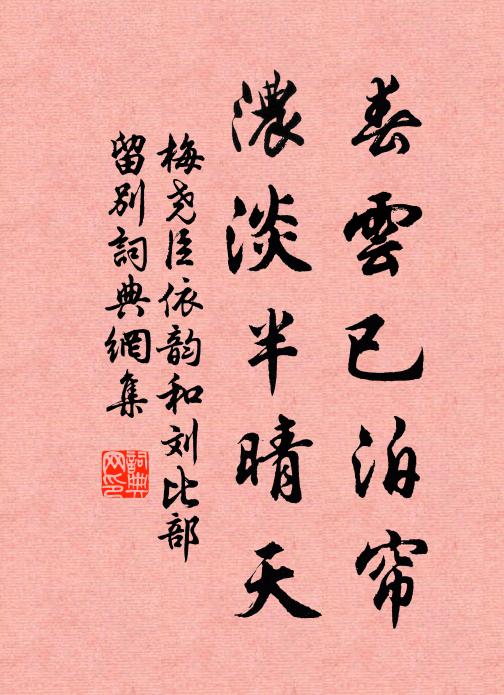 春雲已泊帘
濃淡半晴天
梅尧臣依韵和刘比部
留别詞典網集
詞典
网印